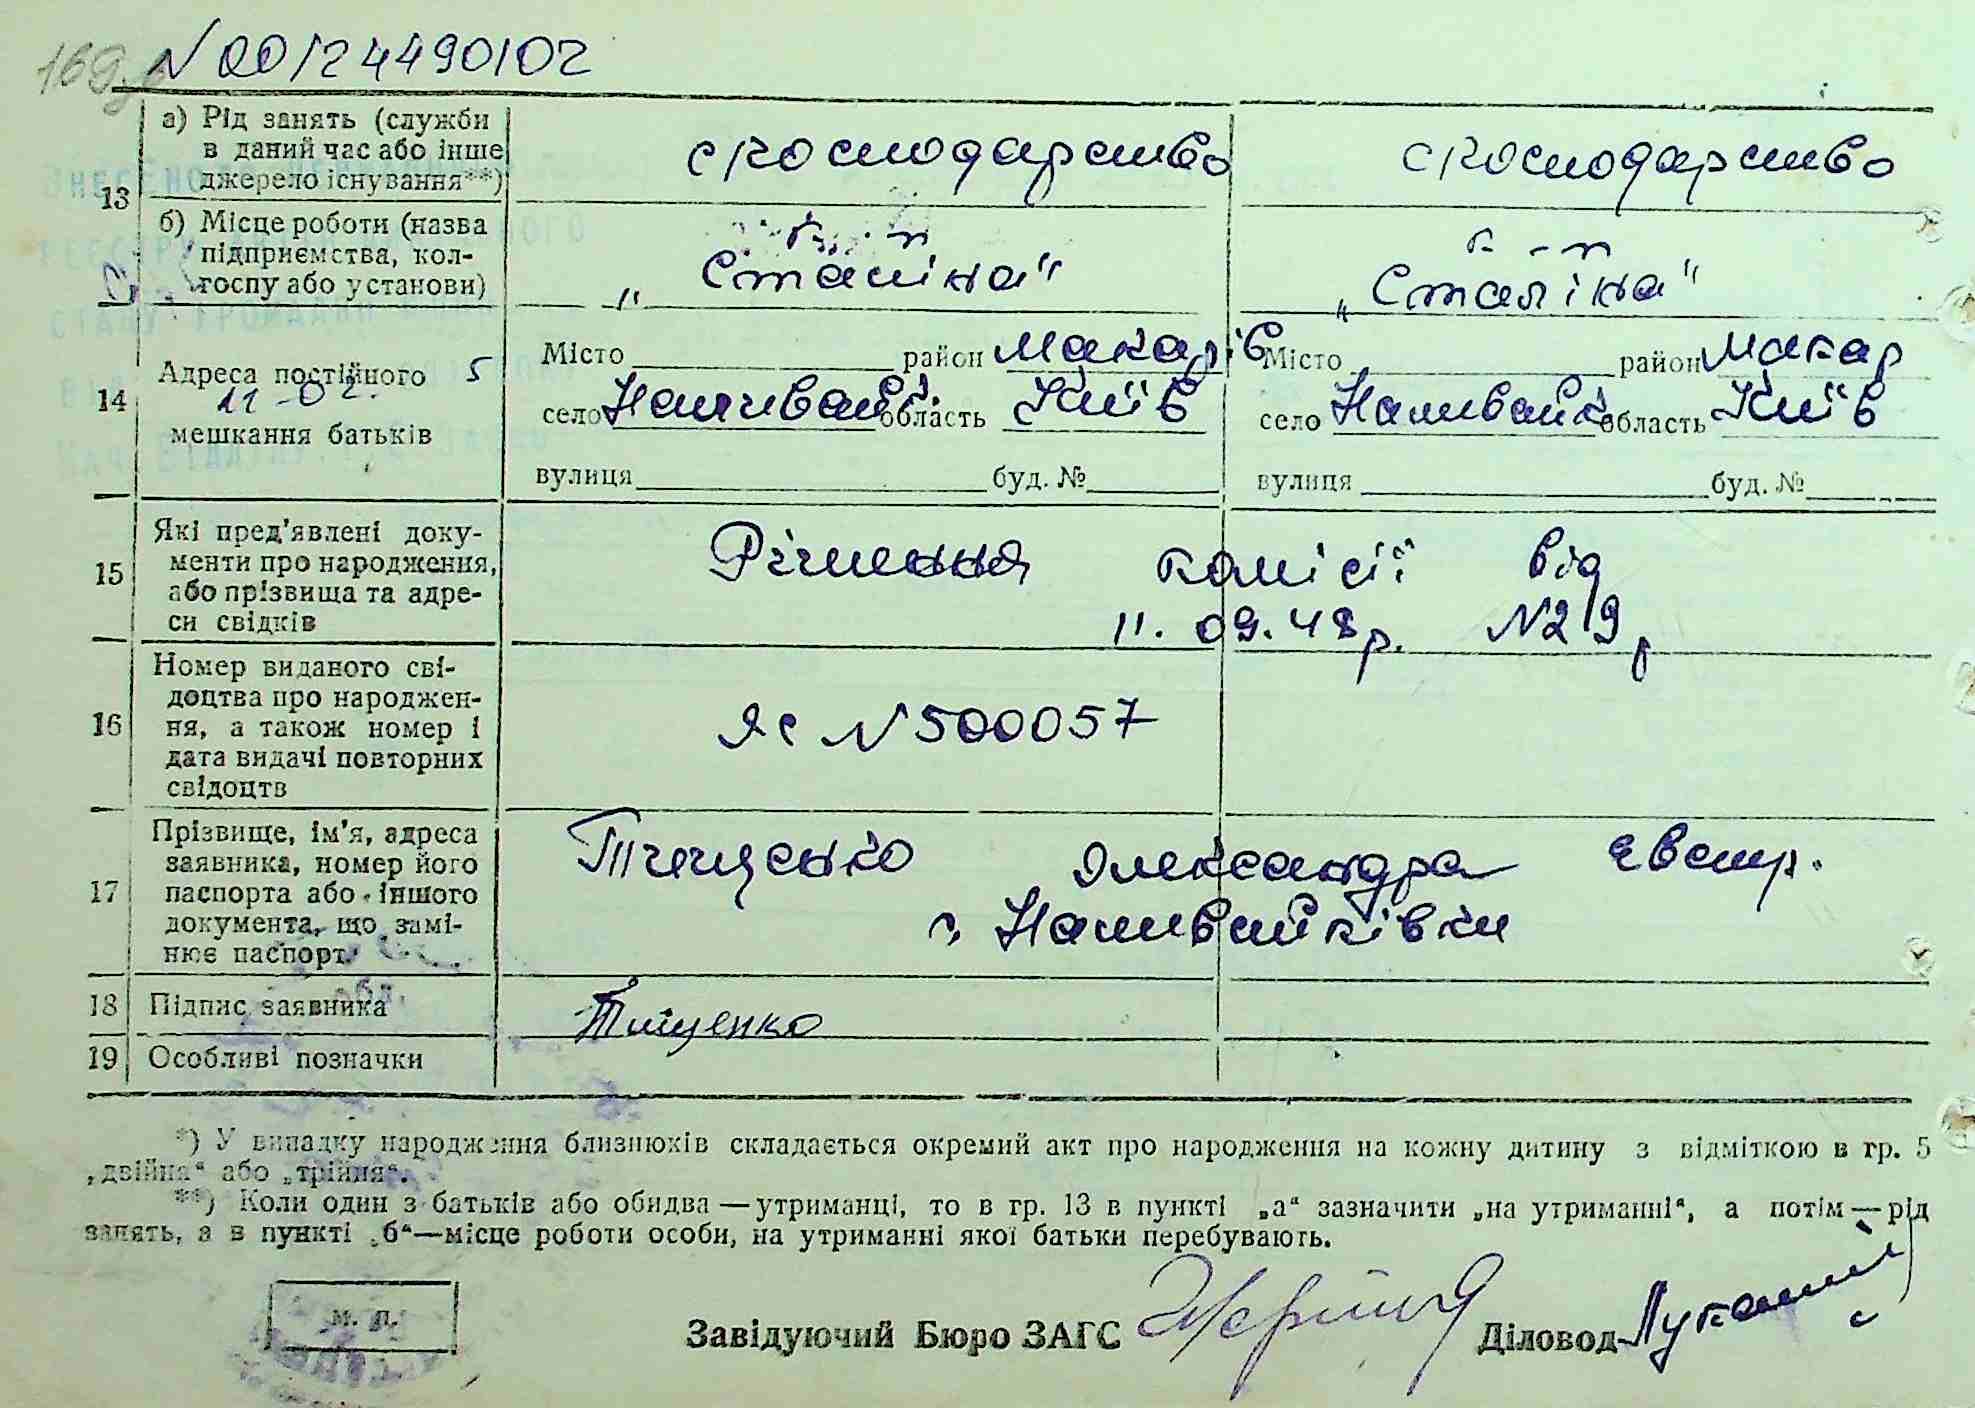 N 00124490102
а) Рід занять (служби в даний час або інше джерело існування**)
с/господарство
с/господарство
13
б) Місце роботи (назва підприємства, колгоспу або установи)
к-п „Сталіна“
к-п „Сталіна“
14
Адреса постійного мешкання батьків
Місто район Макарів
село Наливайк. область Київ
вулиця буд. №
Місто район Макар
село Наливайк область Київ
вулиця буд. №
15
Які пред'явлені документи про народження, або прізвища та адреси свідків
Рішення комісії від
11. 09. 48 р. N219
16
Номер виданого свідоцтва про народження, а також номер і дата видачі повторних свідоцтв
ЯС N 500057
17
Прізвище, ім'я, адреса заявника, номер його паспорта або іншого документа, що замінює паспорт
Тищенко Олександра Євстр.
с. Наливайківки
18 Підпис заявника
Тищенко
19 Особливі позначки
*) У випадку народження близнюків складається окремий акт про народження на кожну дитину з відміткою в гр. 5
„двійна“ або „трійня“.
**) Коли один з батьків або обидва — утриманці, то в гр. 13 в пункті „а“ зазначити „на утриманні“, а потім — рід
занять, а в пункті „б“—місце роботи особи, на утриманні якої батьки перебувають.
м. п.
Завідуючий Бюро ЗАГС
Діловод